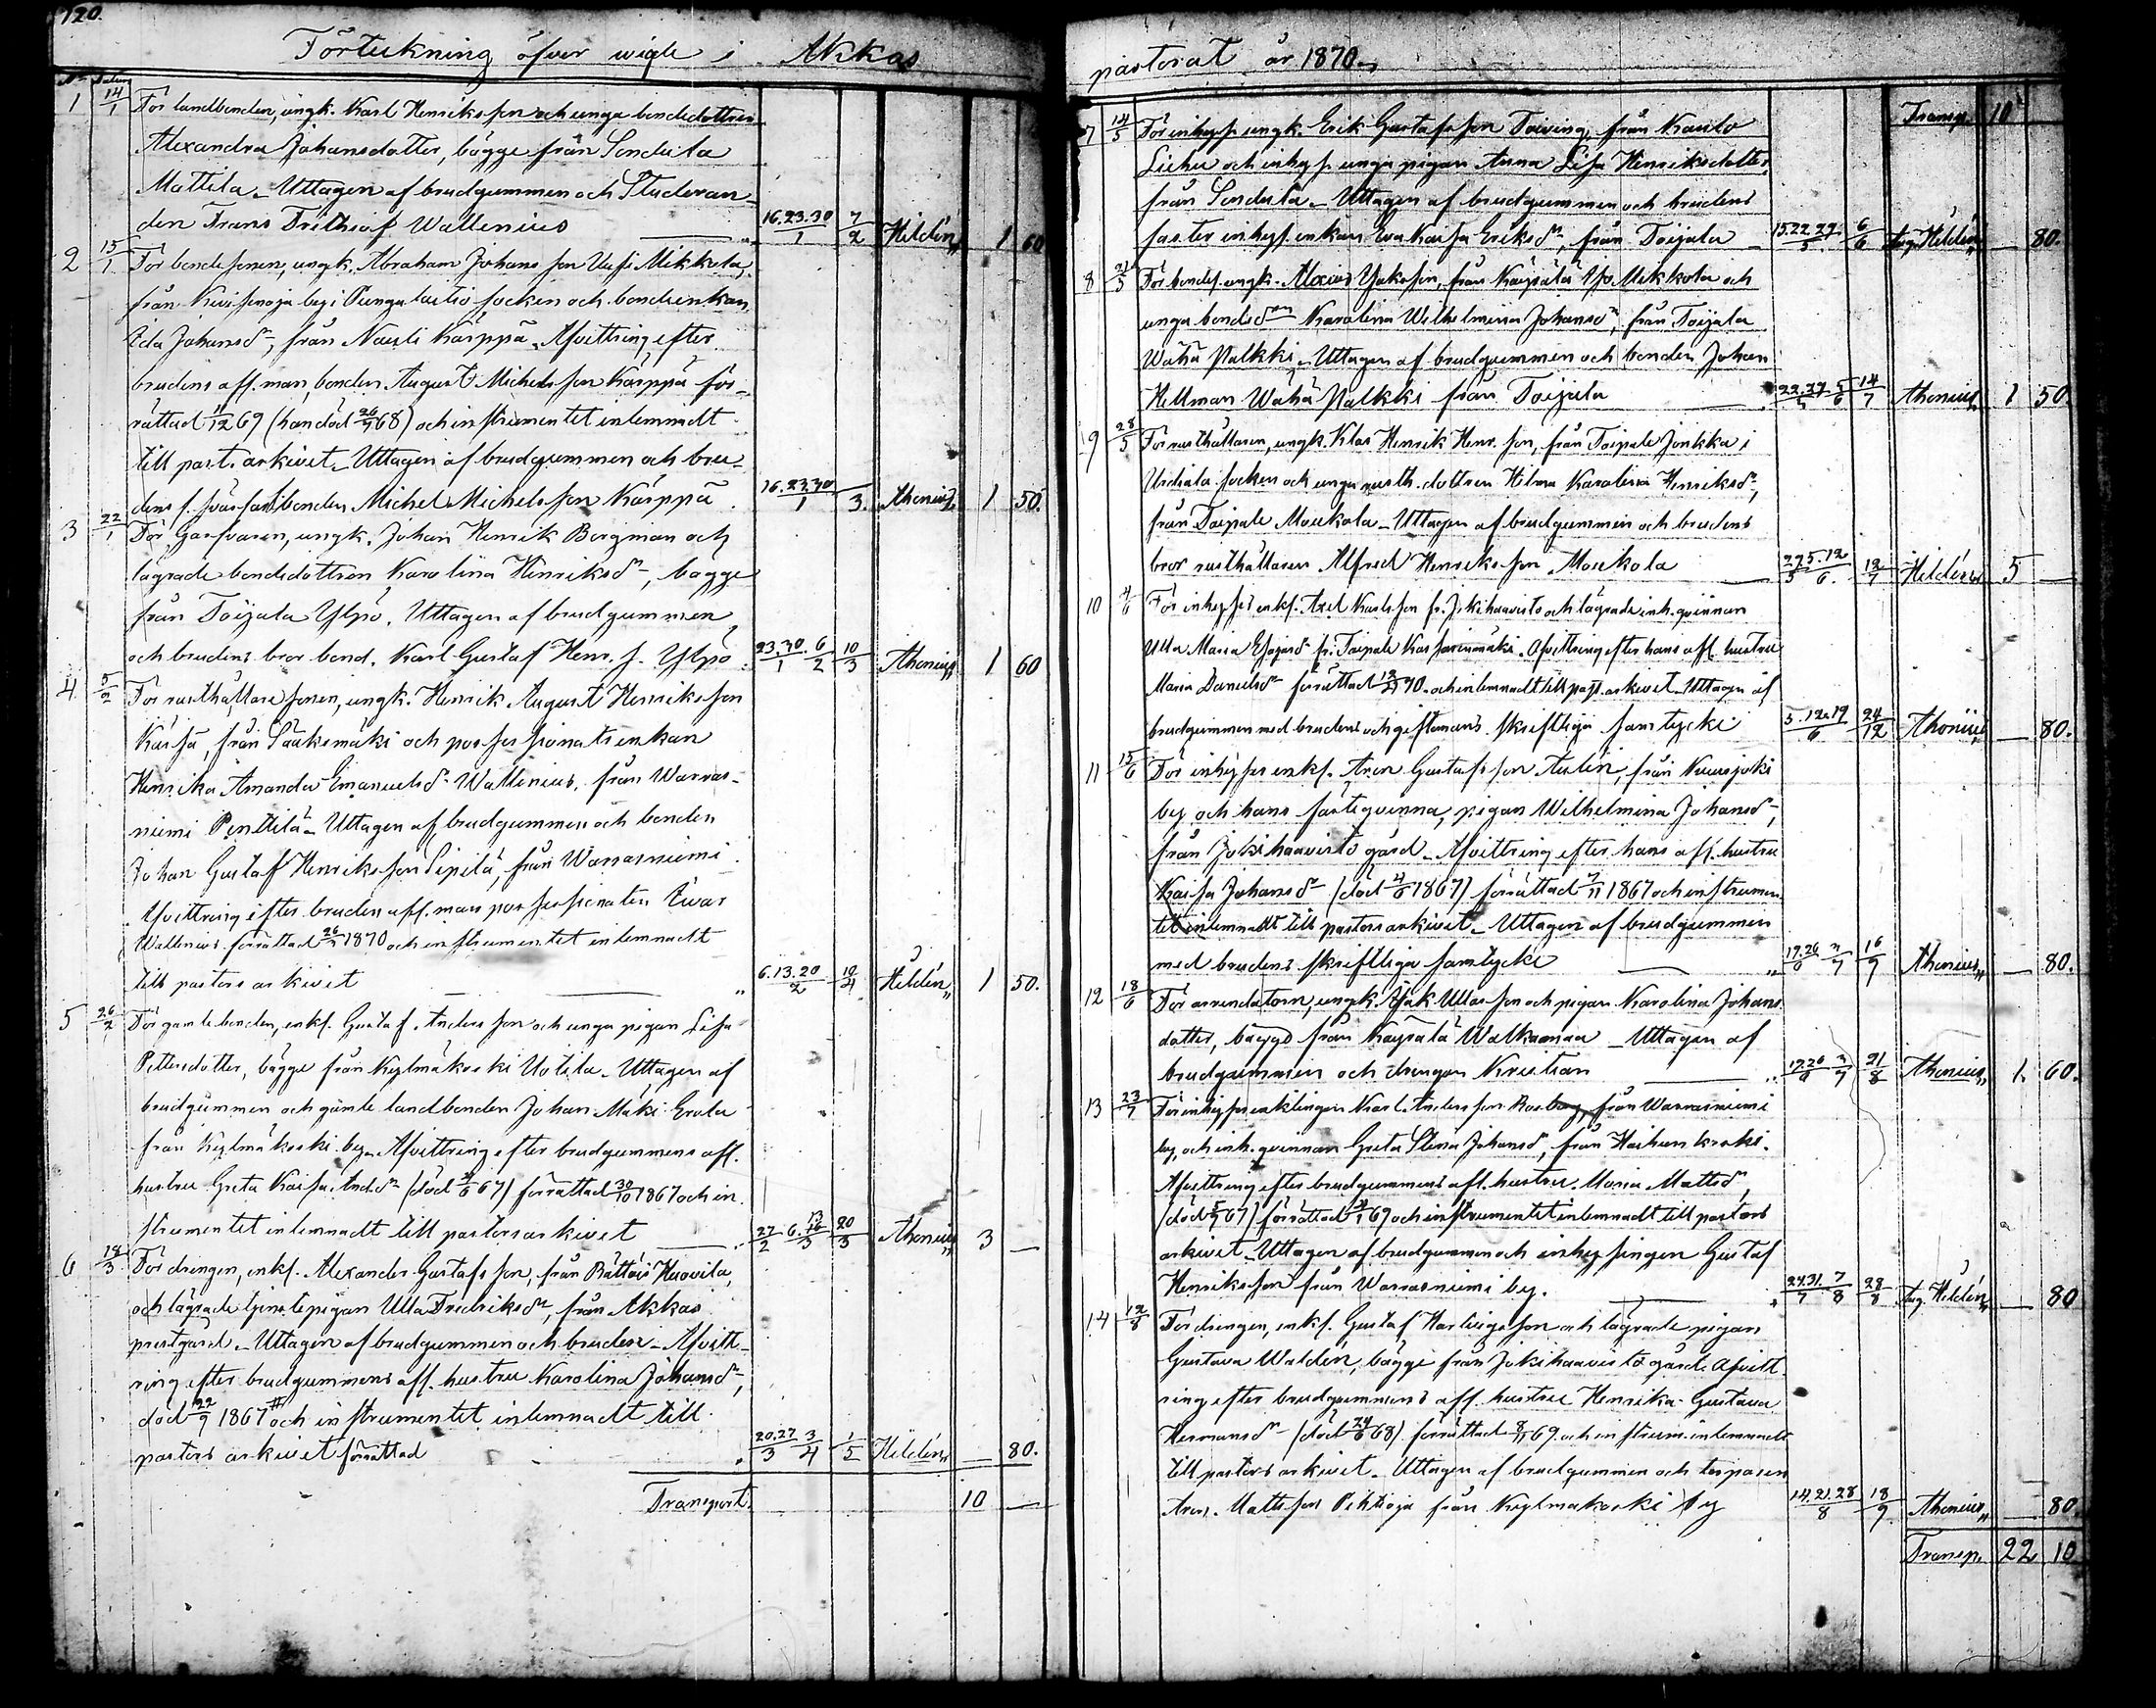 120.
Förteckning öfver wigde i Akkas
pastorat år 1870.
N° Datum
1 14/1 För landbonden, ungk. Karl Henriksson och unga bondedottren
Alexandra Johansdotter, bägge från Sondula
Mattila. Uttagen af brudgummen och Studeran-
den Frans Frithiof Wallenius 16.23.30/1 7/2 Hildén 1 60
2 15/1 För bondesonen, ungk. Abraham Johansson Uusi Mikkola,
från by i Pungalaitio socken och bondeenkan,
Eda Johansdr, från Nauli Kärppä. Afvittring efter
brudens afl. man, bonden August Michelsson Kärppä för-
rättad 11/12 69 (han död 26/7 68) och instrumentet inlemnadt
till past. arkivet. Uttagen af brudgummen och bru-
dens f. svärfar bonden Michel Michelsson Kärppä 16.23.30/1 3. Athenius 1 50.
3 22/1 För Garfvaren, ungk. Johan Henrik Bergman och
lägrade bondedottren Karolina Henriksdr, bägge
från Toijala Ylpö. Uttagen af brudgummen
och brudens bror bond. Karl Gustaf Henr. s. Ylpö 23.30/1 6/2 10/3 Athenius 1 60
4 5/2 För rusthållaresonen, ungk. Henrik August Henriksson
från Sääksmäki och possessionatsenkan
Henrika Amanda Emanuelsdr Wallenius från Warras-
niemi Penttilä. Uttagen af brudgummen och bonden
Johan Gustaf Henriksson Sipilä, från Warrasniemi
Afvittring efter bruden afl. man possessionaten Iwar
Wallenius förrättad 26/1 1870 och instrumentet inlemnadt
till pastors arkivet 6.13.20/2 19/4 Hildén 1 50.
5 26/2 För gamle bonden, enkl. Gustaf Andersson och unga pigan Lisa
Pettersdotter, bägge från Kylmäkoski Uotila. Uttagen af
brudgummen och gamle landbonden Johan Mäki Erola
från Kylmäkoski by. Afvittring efter brudgummens afl.
hustru Greta Kaisa And.dr (död 9/6 67) förrättad 30/10 1867 och in-
strumentet inlemnadt till pastorsarkivet 27/2 6.13/3 20/3 Athenius 3 —
6 18/3 För drengen, enkl. Alexander Gustafsson, från Rättöis Huovila,
och lägrade tjenstepigan Ulla Fredriksdr, från Akkas
prestgård. Uttagen af brudgummen och bruden. Afvitt-
ring efter brudgummens afl. hustru Karolina Johansdr,
död 22/9 1867 och instrumentet inlemnadt till
pastors arkivet förrättad 20.27/3 3/4 1/5 Hildén — 80.
Transport 10 —
Transp. 10
7 14/5 För inhyses ungk. Erik Gustafsson Toiving, från Kauto
och inhys. unga pigan Anna Lisa Henriksdotter,
från Sondula. Uttagen af brudgummen och brudens
faster inhys. enkan Eva Kaisa Eriksdr, från Toijala 15.22.29/5 6/6 Aug. Hildén — 80.
8 21/5 För bondes. ungk. Alexius Jakosson, från Käyrälä Mikkola och
unga bondedrn Karolina Wilhelmina Johansdr, från Toijala
Wähä Nalkki. Uttagen af brudgummen och bonden Johan
Hellman Wähä Nalkki från Toijala 22.29/5 5/6 14/7 Athenius 1 50.
9 28/5 För rusthållaren, ungk. Klas Henrik Henr. son, från Taipale Jonkka i
Urdiala socken och unga rusth. dottren Hilma Karolina Henriksdr,
från Taipale Moukola. Uttagen af brudgummen och brudens
bror rusthållaren Alfred Henriksson Moukola 29/5 5.12/6 12/7 Hildén 5 —
10 4/6 För inhyses enkl. Axel Karlsson fr. Jokihaavisto och lägrade inh. qvinnan
Ulla Maria Esajasdr fr. Taipale. Afvittring efter hans afl. hustru
Maria Danielsdr förrättad 70 och inlemnadt till past. arkivet. Uttagen af
brudgummen med brudens och giftomans skriftliga samtycke 5.12.19/6 24/12 Athenius — 80.
11 15/6 För inhyses enkl. Aron Gustafsson Aulin, från Kuurjoki
by och hans fästeqvinna, pigan Wilhelmina Johansdr,
från Jokihaavisto gård. Afvittring efter hans afl. hustru
Kaisa Johansdr (död 4/6 1867) förrättad 7/11 1867 och instrumen-
tet inlemnadt till pastorsarkivet. Uttagen af brudgummen
med brudens skriftliga samtycke 19.26/6 3/7 16/7 Athenius — 80.
12 18/6 För arrendatorn, ungk. Isak Ullasson och pigan Karolina Johans-
dotter, bägge från Käyrälä Walkamaa. Uttagen af
brudgummen och drengen Kristian 19.26/6 3/7 21/8 Athenius 1. 60.
13 23/7 För inhyses enklingen Karl Andersson Rosberg, från Warrasniemi
by, och inh. qvinnan Greta Stina Johansdr, från
Afvittring efter brudgummens afl. hustru Maria Mattsdr,
(död 67) förrättad 69 och instrumentet inlemnadt till pastors
arkivet. Uttagen af brudgummen och inhysingen Gustaf
Henriksson från Warrasniemi by. 24.31/7 7/8 28/8 Aug. Hildén — 80
14 12/8 För drengen, enkl. Gustaf Hartvigsson och lägrade pigan
Gustava Waldén, bägge från Jokihaavisto gård. Afvitt-
ring efter brudgummens afl. hustru Henrika Gustava
Hermansdr (död 24/6 68) förrättad 69. och instrum. inlemnadt
till pastors arkivet. Uttagen af brudgummen och torparen
Aron Mattsson Pihtioja från Kylmäkoski by 14.21.28/8 18/9 Athenius — 80.
Transp. 22 10